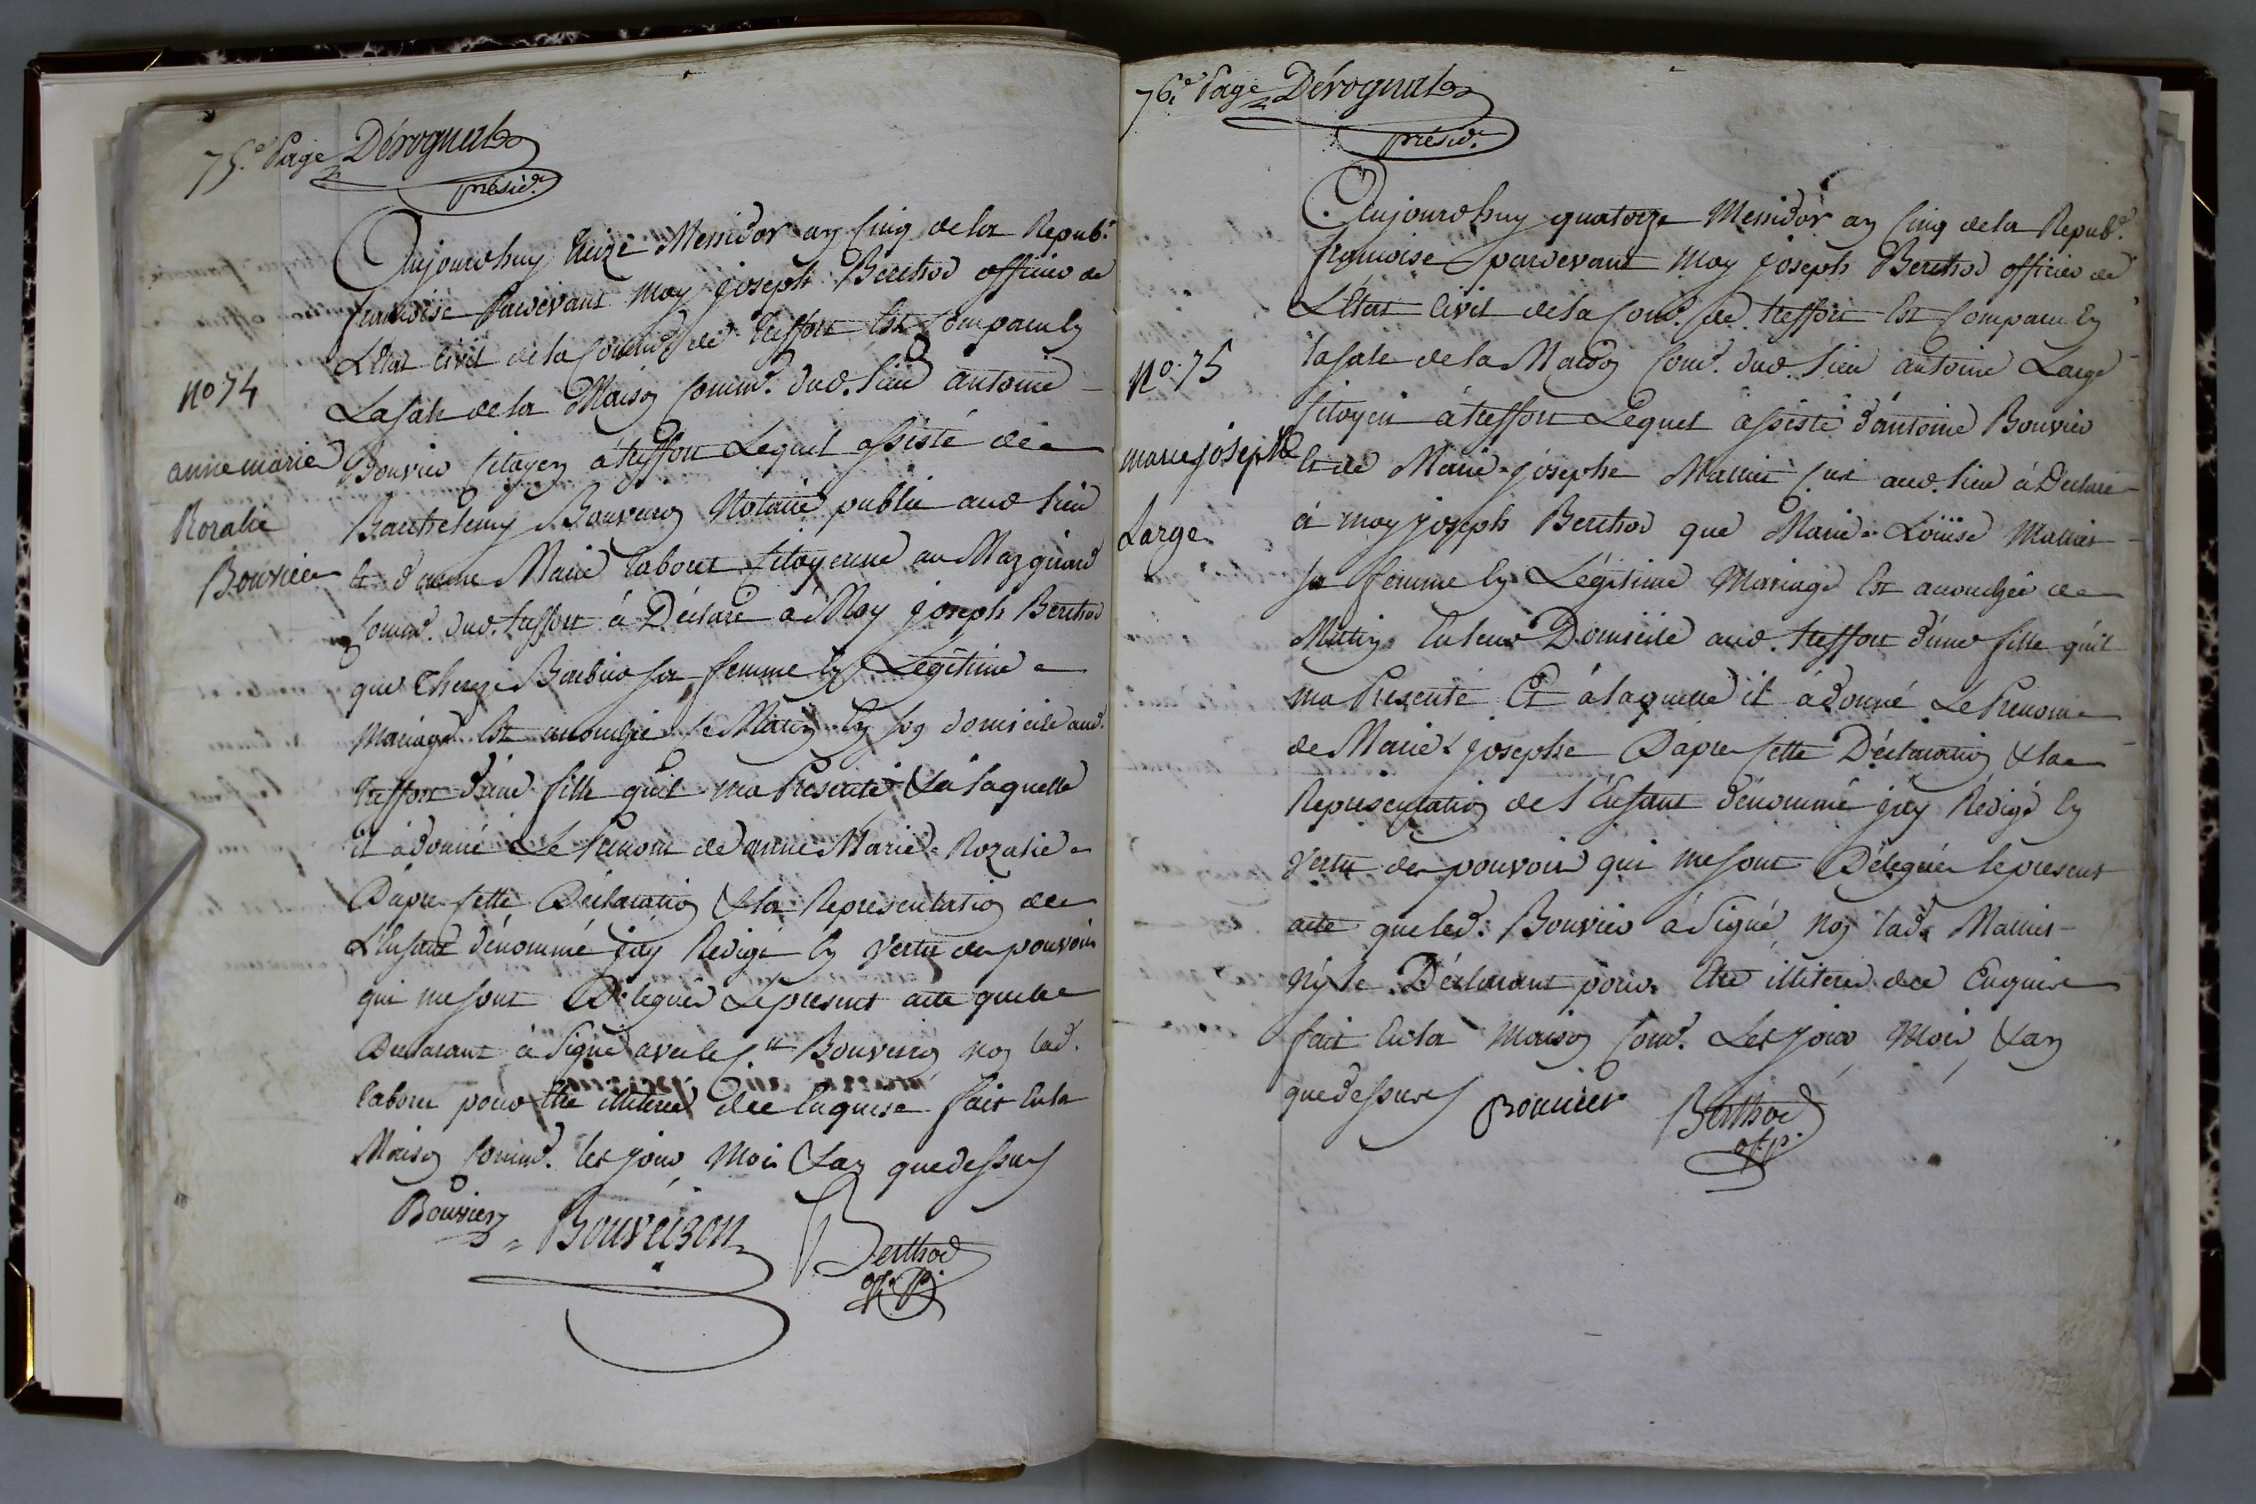 75.e Page Dérognat
présid.t
Aujourdhuy treize Messidor an Cinq de la Repub.e
francoise Pardevant moy joseph Berthod officier de
L'Etat Civil de la Comm.e de treffort Est Comparu En
La Sale de la Maison Comm.e dud. lieu antoine
Bouvier Citoyen à treffort Lequel assisté de
Barthelemy Bouveiron Notaire public aud lieu
Et d'anne Marie Citoyenne au Mazgirard
Comm.e dud. treffort à Déclaré à Moy joseph Berthod
que Thereze Barbier sa femme En Légitime
Mariage Est accouchée ce Matin En son domicile aud.
treffort d'une fille quil ma Presenté & à laquelle
il à donné Le Prenom de anne Marie Rozalie
Dapre Cette Déclaration & la Representation de
L'Enfant dénommé jay Redigé En Vertu des pouvoirs
qui me sont Délegués Le present acte que le
Déclarant à Signé avec le C.en Bouveiron non lad.
pour Etre illiterée de Enquise fait En la
Maison Comm.e les jour Mois & an que dessus
Bouvier Bouveiron Berthod
off. p.
No 74
anne marie
Rozalie
Bouvier
76.e Page Dérognat
présid.t
Aujourdhuy quatorze Messidor an Cinq de la Repub.e
francoise pardevant Moy joseph Berthod officier de
L'Etat Civil de la Com.e de treffort Est Comparu En
la Sale de la Maison Com.e dud. lieu antoine Large
Citoyen à treffort Lequel assisté d'antoine Bouvier
Et de Marie josephe aud. lieu à Déclaré
à moy joseph Berthod que Marie Louise
sa femme En Légitime Mariage Est accouchée ce
Matin En leur Domicile aud. treffort d'une fille quil
ma Presenté Et à laquelle il à donné Le Prenom
de Marie josephe Dapre Cette Déclaration & la
Representation de l'Enfant dénommé jay Rédigé En
Vertu des pouvoirs qui me sont Délegués le present
acte que led. Bouvier à Signé non lad.
Ny le Déclarant pour Etre illiterés de Enquis
fait En la Maison Com.e Les jour Mois & an
que dessus Bouvier Berthod
off. p.
No. 75
marie josephe
Large